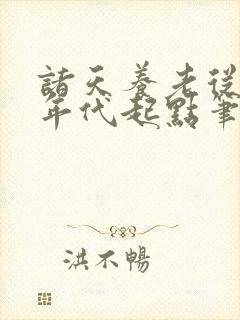 諸天養老從
年代起點筆
洪不暢